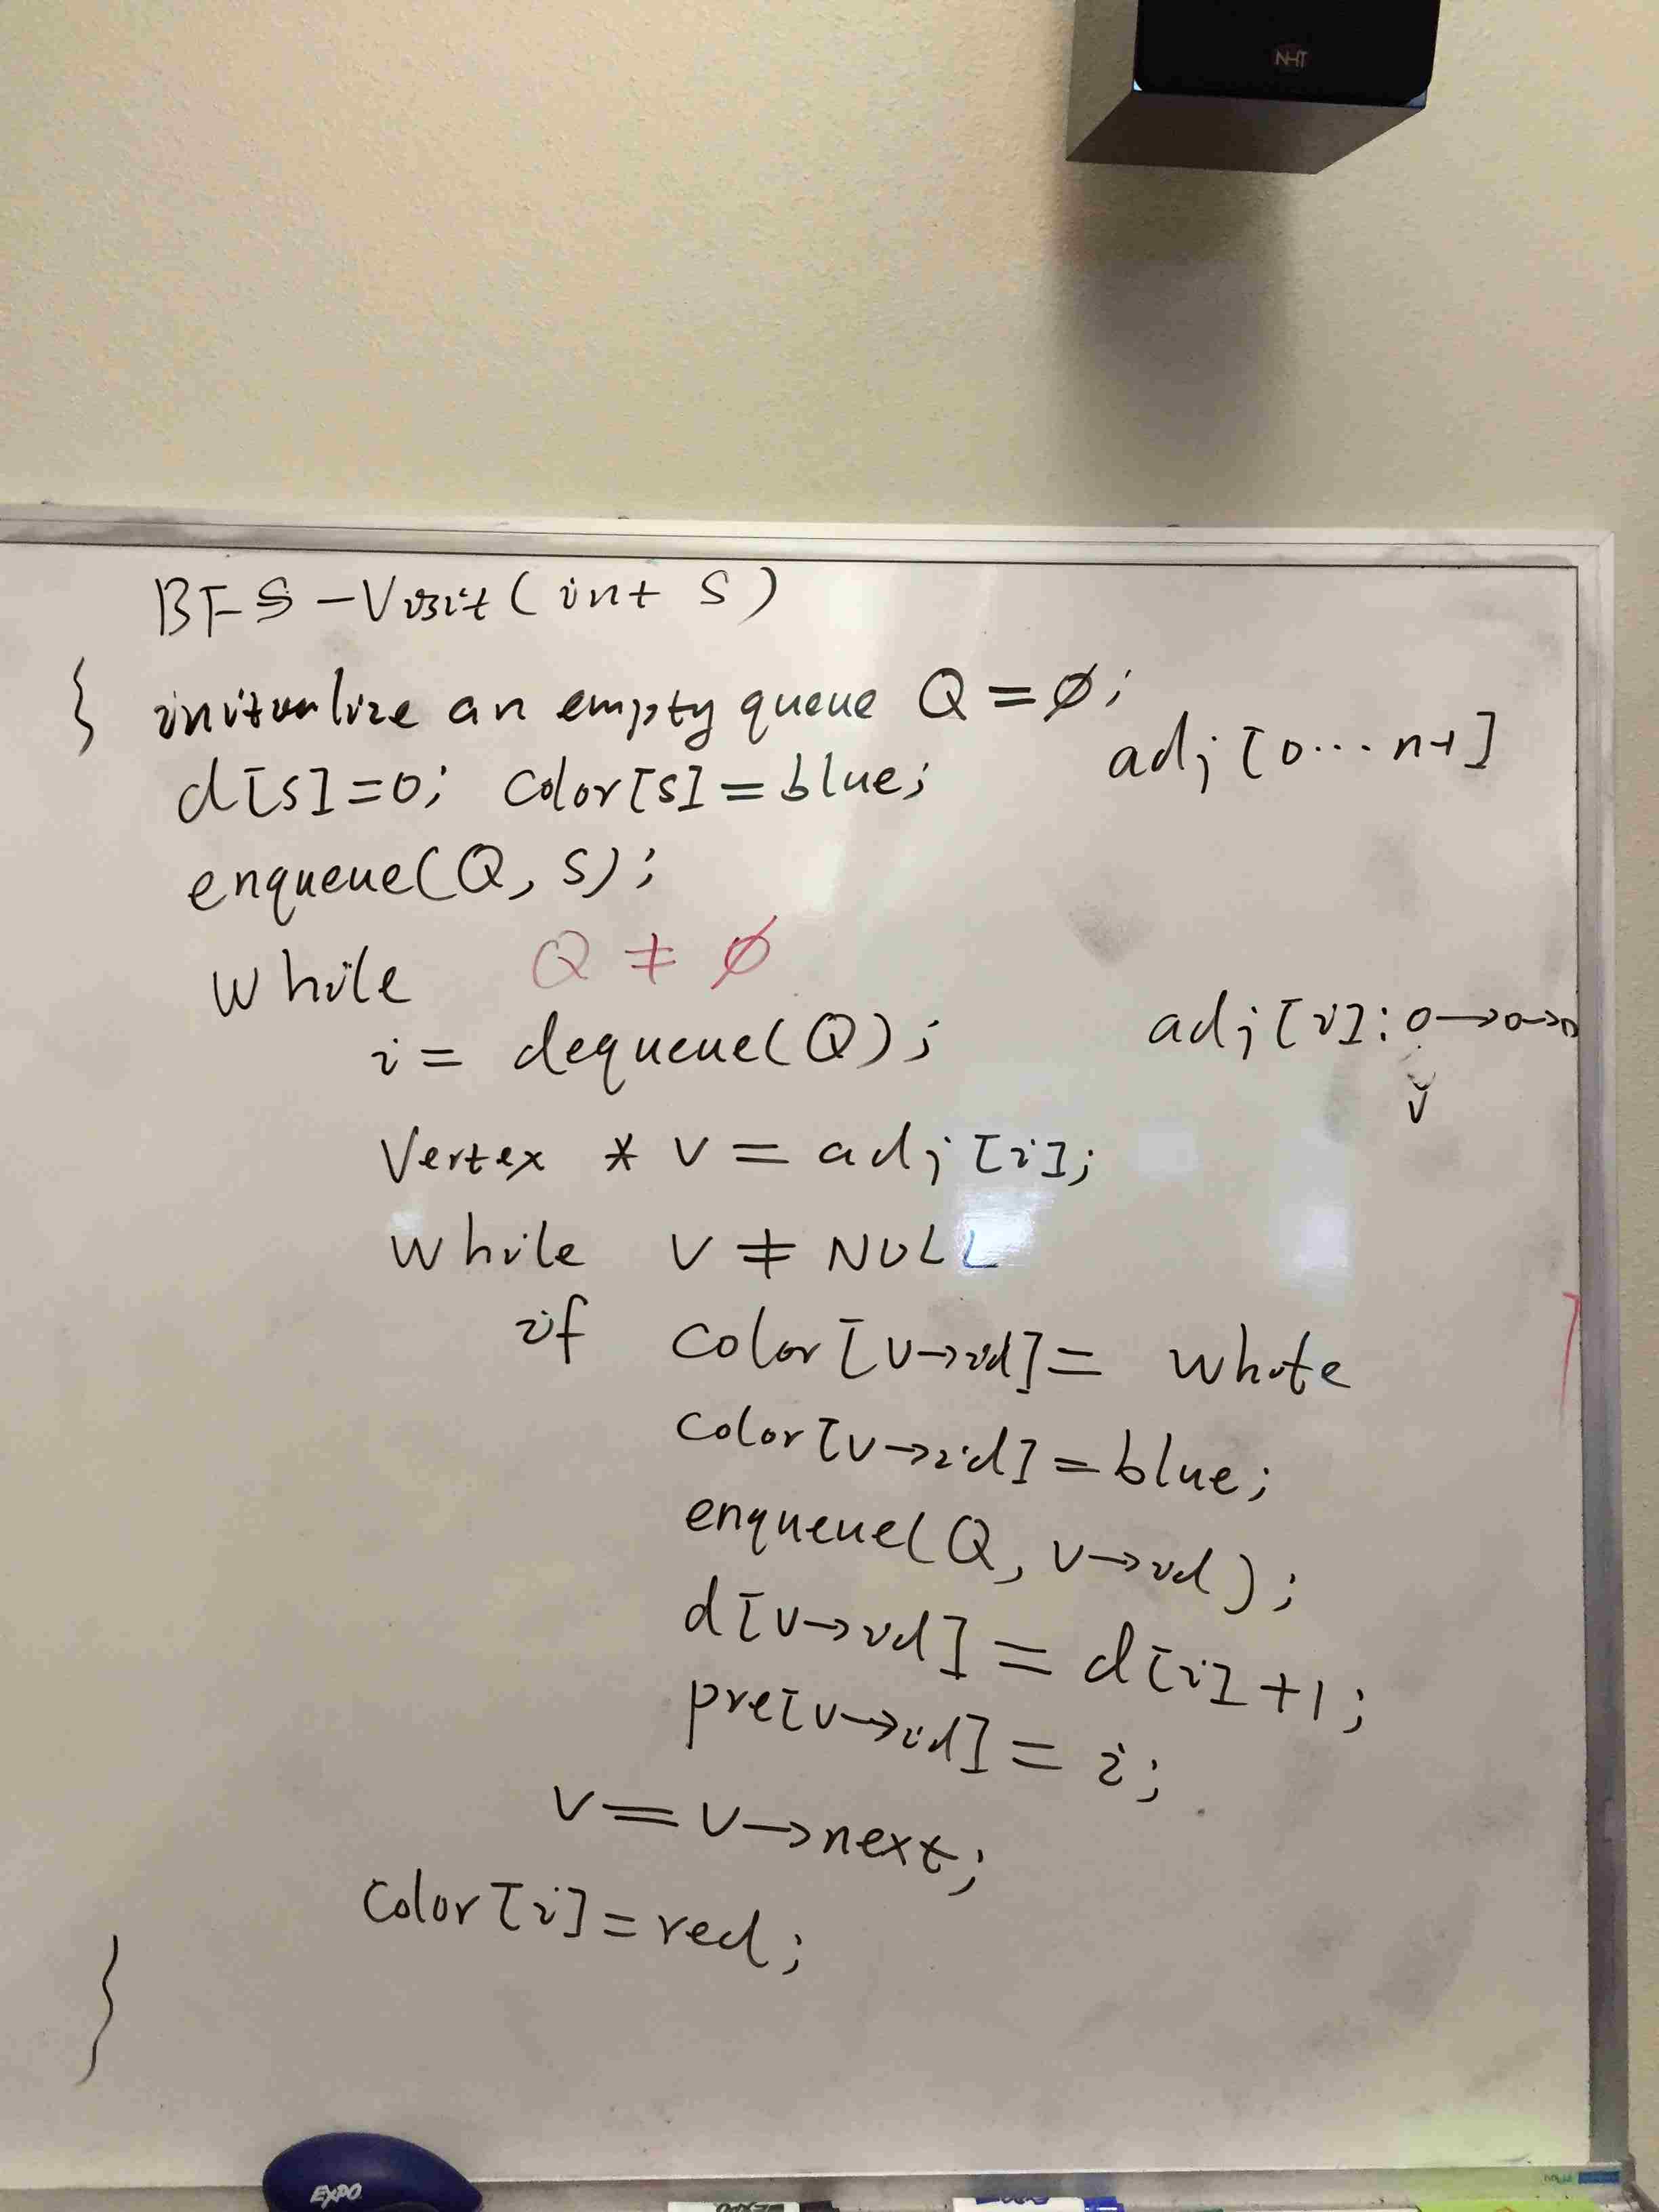 NHT
BFS-Visit(int s)
{ initialize an empty queue Q=∅;
adj[0...n-1]
d[s]=0; color[s]=blue;
enqueue(Q, s);
while Q ≠ ∅
i = dequeue(Q);
adj[i]: o→o→o
v
Vertex * v = adj[i];
while v ≠ NULL
if color[v→id] = white
color[v→id]=blue;
enqueue(Q, v→id);
d[v→id] = d[i]+1;
pre[v→id] = i;
v=v→next;
color[i]=red;
}
EXPO